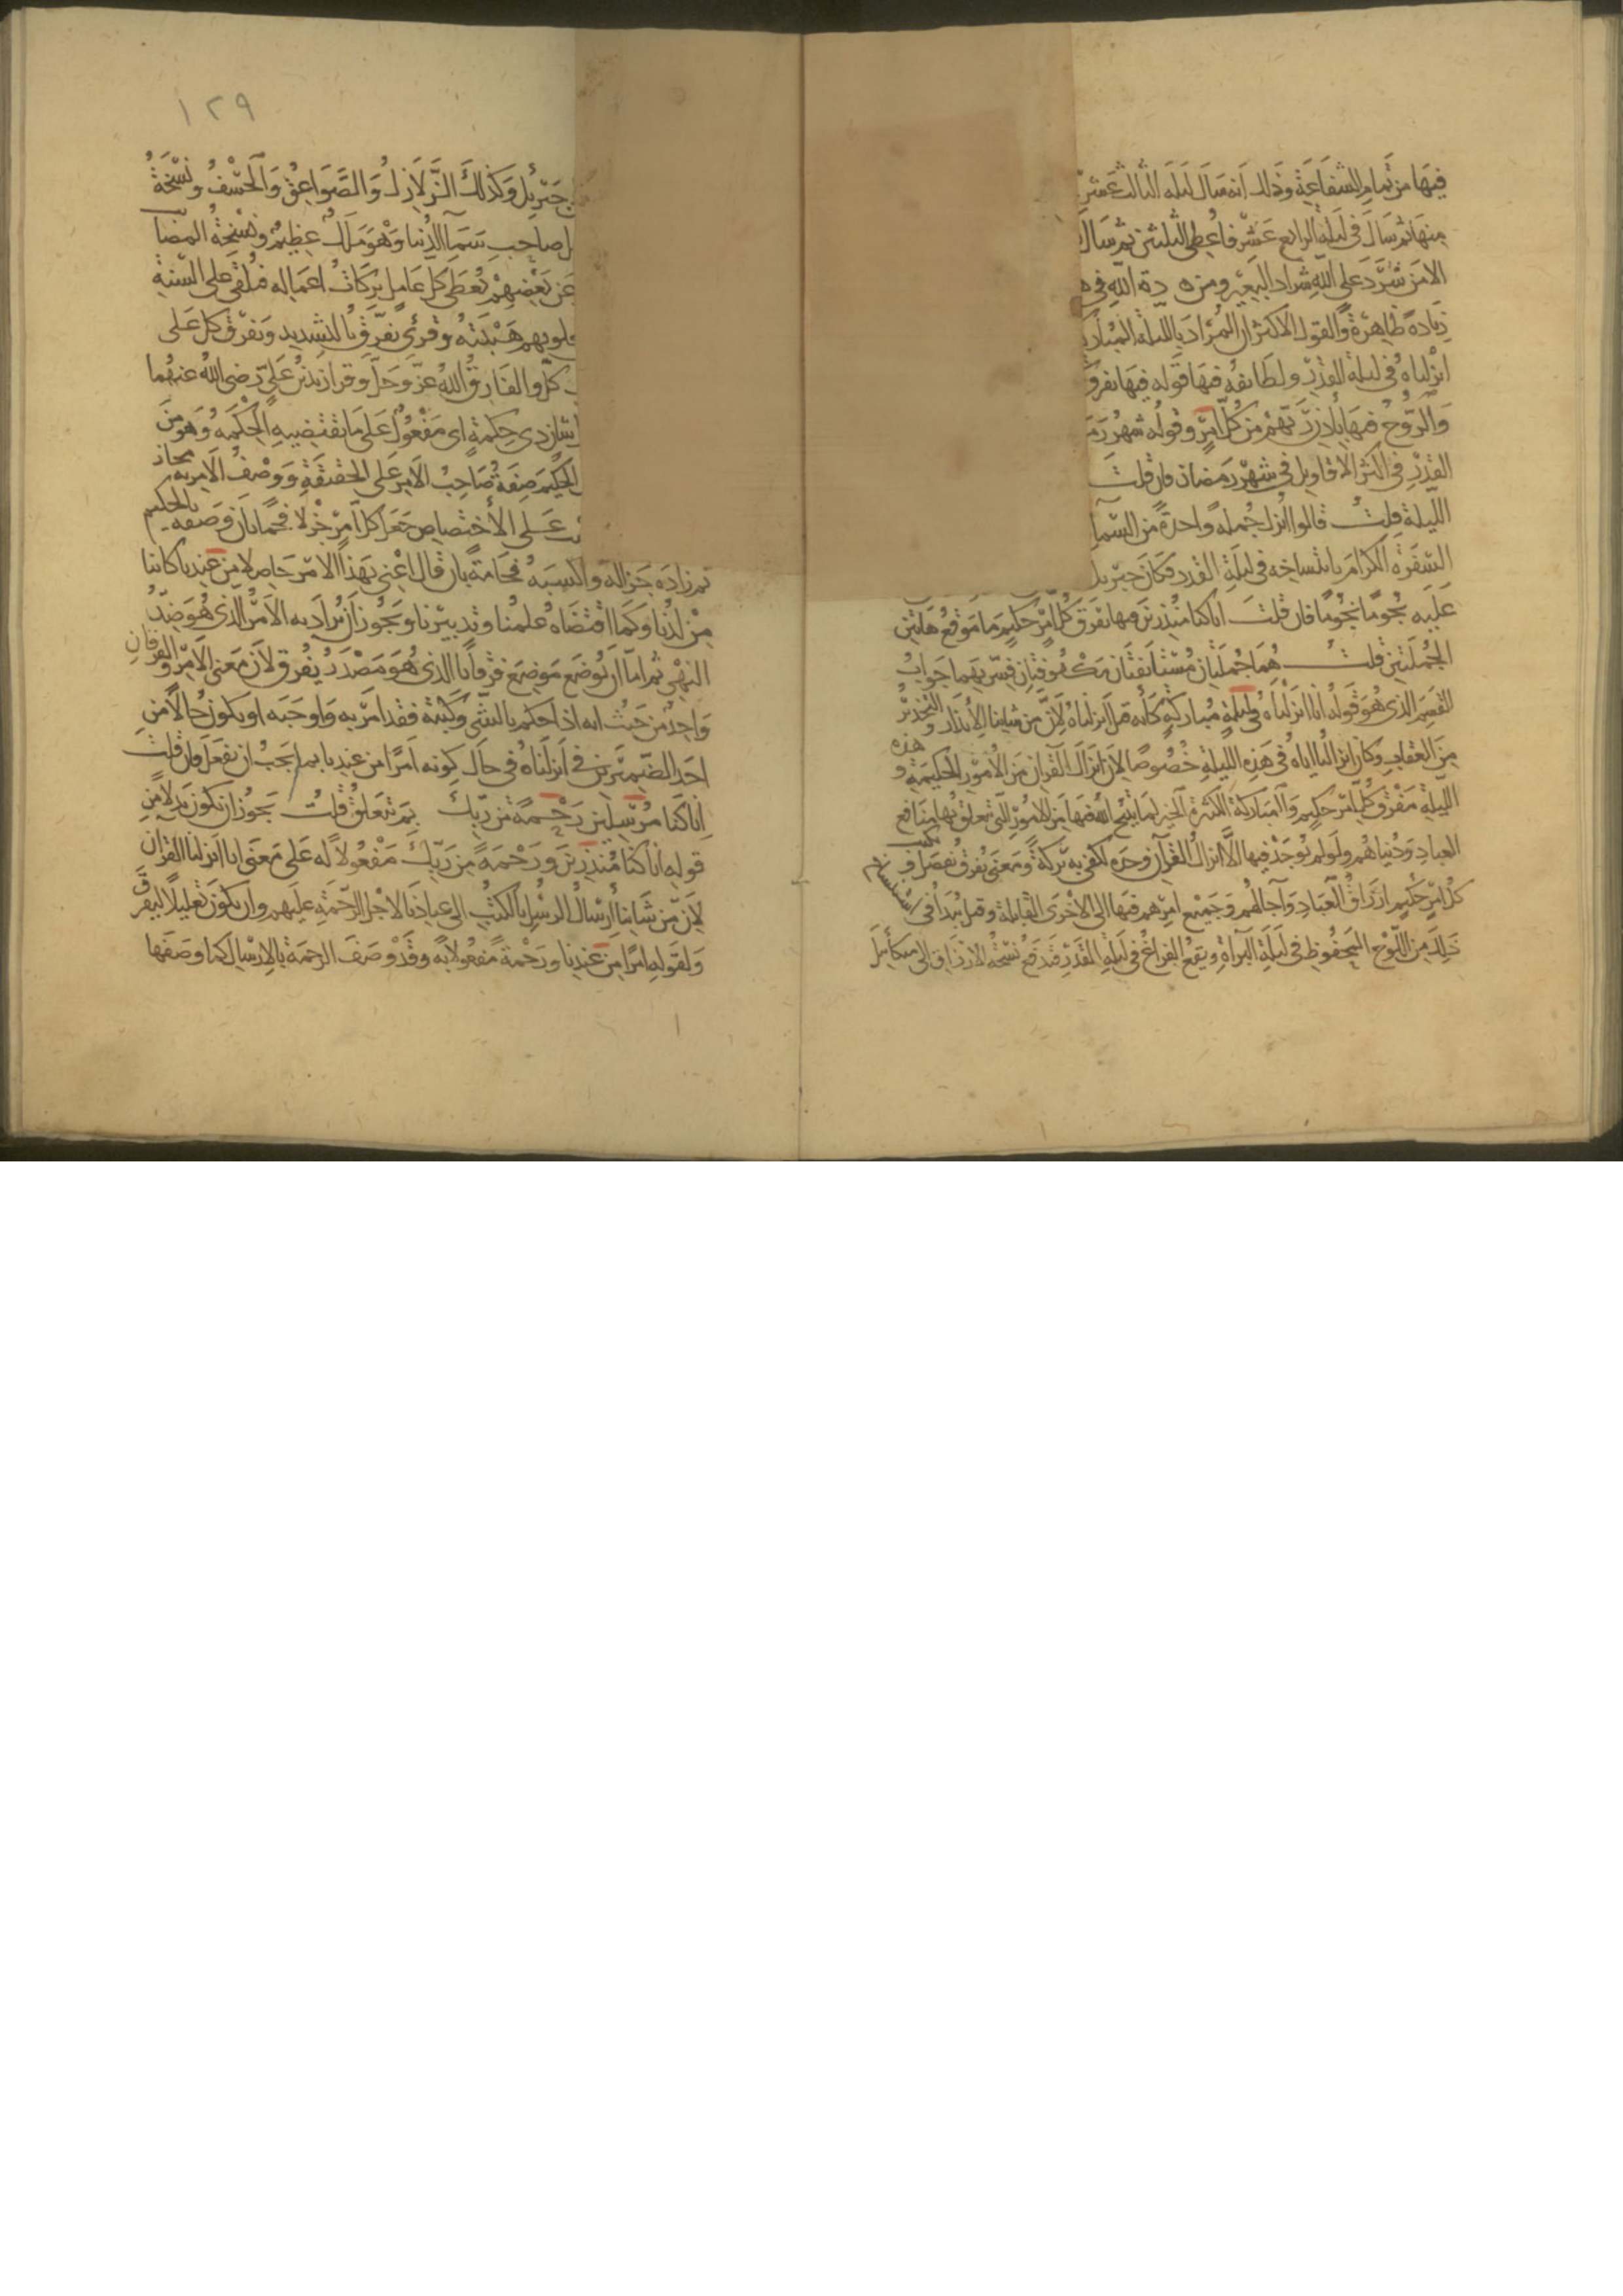 فيها من تمام الشفاعة وذلك انه سال ليلة الثالث عشر
منها ثم سال في ليلة الرابع عشر فاعطي الثلثين ثم سال
الا من شرد على الله شراد البعير ومن دة الله في ه
زيادة ظاهرة والقول الاكثر ان المراد بالليلة المبارك
انزلناه في ليلة القدر ولطابقة فيها قوله فيها يفرق
والروح فيها باذن ربهم من كل امر وقوله شهر رم
القدر في اكثر الاقاويل في شهر رمضان فان قلت
الليلة قلت قالوا انزل جملة واحدة من السما
السفرة الكرام بانتساخه في ليلة القدر فكان جبريل
عليه نجوما نجوما فان قلت انا كنا منذرين فيها يفرق كل امر حكيم ما موقع هاتين
الجملتين قلت هما جملتان مستانفتان ملفوفتان فسر بهما جواب
القسم الذي هو قوله انا انزلناه في ليلة مباركة كانه قيل انزلناه لان من شاننا الانذار والتحذير
من العقاب وكان انزالنا اياه في هذه الليلة خصوصا لان انزال القران من الامور الحكيمة وهذه
الليلة مفرق كل امر حكيم والمباركة الكثيرة الخير لما يتيح الله فيها من الامور التي تعلق بها منافع
العباد ودنياهم ولو لم يوجد فيها الا انزال القرآن وحده لكفي به بركة ومعنى يفرق يفصل ويكتب
كل امر حكيم ارزاق العباد وآجالهم وجميع امرهم فيها الى الاخرى القابلة وقيل يبدا في استنساخ
ذلك من اللوح المحفوظ في ليلة البراة ويقع الفراغ في ليلة القدر فتدفع نسخة الارزاق الى ميكائيل
١٢٩
جبريل وكذلك الزلازل والصواعق والخسف ونسخة
ل صاحب سما الدنيا وهو ملك عظيم ونسخة المصايب
عن بعضهم يعطى كل عامل بركات اعماله فيلقى على السنة
قلوبهم هيبته وقرئ يفرق بالتشديد ويفرق كل على
كل والفارق الله عز وجل وقرا زيد بن علي رضي الله عنهما
شان ذي حكمة اي مفعول على ما تقتضيه الحكمة وهو من
الحكيم صفة صاحب الامر على الحقيقة ووصف الامر به مجاز
ت على الاختصاص جعل كل امر جزلا فخما بان وصفه بالحكيم
ثم زاده جزالة واكسبه فخامة بان قال اعني بهذا الامر حاصلا من عندنا كائنا
من لدنا وكما اقتضاه علمنا وتدبيرنا ويجوز ان يراد به الامر الذي هو ضد
النهي ثم اما ان يوضع موضع فرقانا الذي هو مصدر يفرق لان معنى الامر والفرقان
واحد من حيث انه اذا حكم بالشي وكتبه فقد امر به واوجبه او يكون حالا من
احد الضميرين في انزلناه في حال كونه امرا من عندنا بما يجب ان يفعل فان قلت
انا كنا مرسلين رحمة من ربك بم تتعلق قلت يجوز ان يكون بدلا من
قوله انا كنا منذرين ورحمة من ربك مفعولا له على معنى انا انزلنا القران
لان من شاننا ارسال الرسل بالكتب الى عبادنا لاجل الرحمة عليهم وان يكون تعليلا ليفرق
ولقوله امرا من عندنا ورحمة مفعولا به وقد وصف الرحمة بالارسال كما وصفها